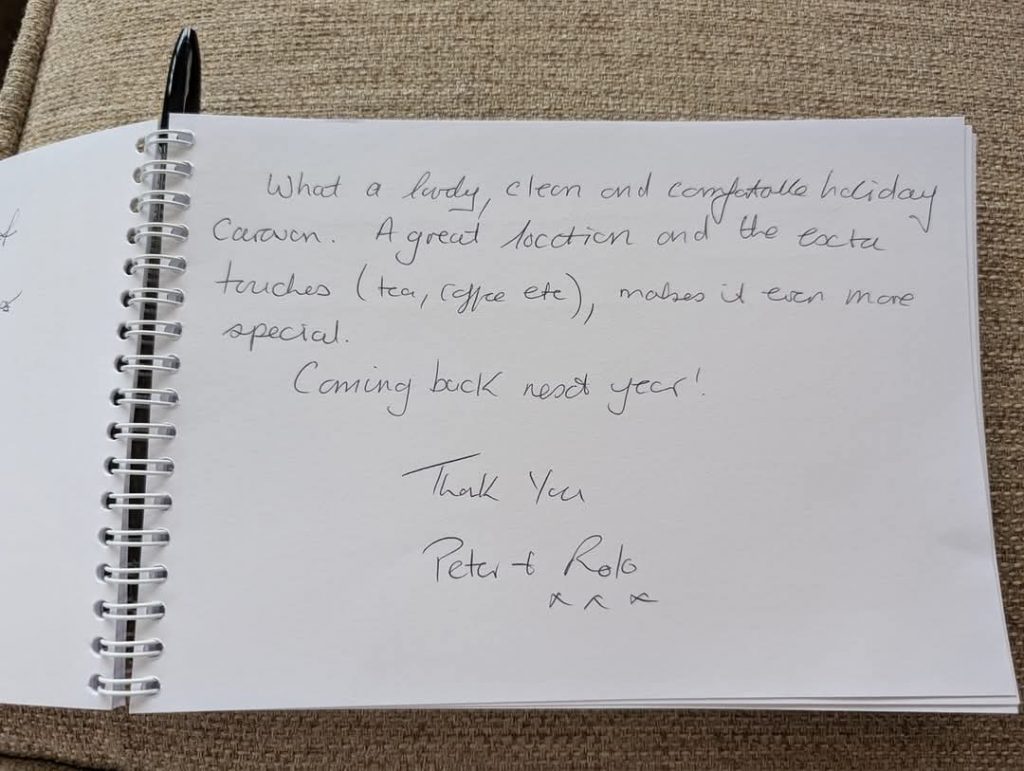 What a lovely, clean and comfortable holiday
Caravan. A great location and the extra
touches (tea, coffee etc), makes it even more
special.
Coming back next year!
Thank You
Peter + Rolo
x x x